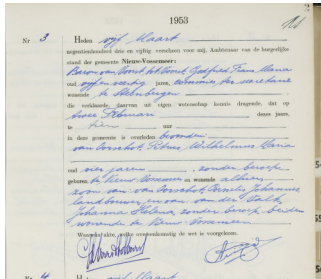 1953
Nr 3
Heden vijf Maart
negentienhonderd drie en vijftig verscheen voor mij, Ambtenaar van de burgerlijke
stand der gemeente Nieuw-Vossemeer:
Baron van Voorst tot Voorst, Godfried Frans Maria
oud vijf en veertig jaren,
wonende te Steenbergen
die verklaarde, daarvan uit eigen wetenschap kennis dragende, dat op
twee Februari dezes jaars,
te tien uur
in deze gemeente is overleden bevonden
van Oorschot, Petrus Wilhelmus Maria
oud vier jaren, zonder beroep
geboren te Nieuw Vossemeer en wonende alhier
zoon van: van Oorschot, Cornelis Johannes
landbouwer, en van
Johanna Helena, zonder beroep, beiden
wonende te Nieuw Vossemeer
Waarvan akte, welke overeenkomstig de wet is voorgelezen.